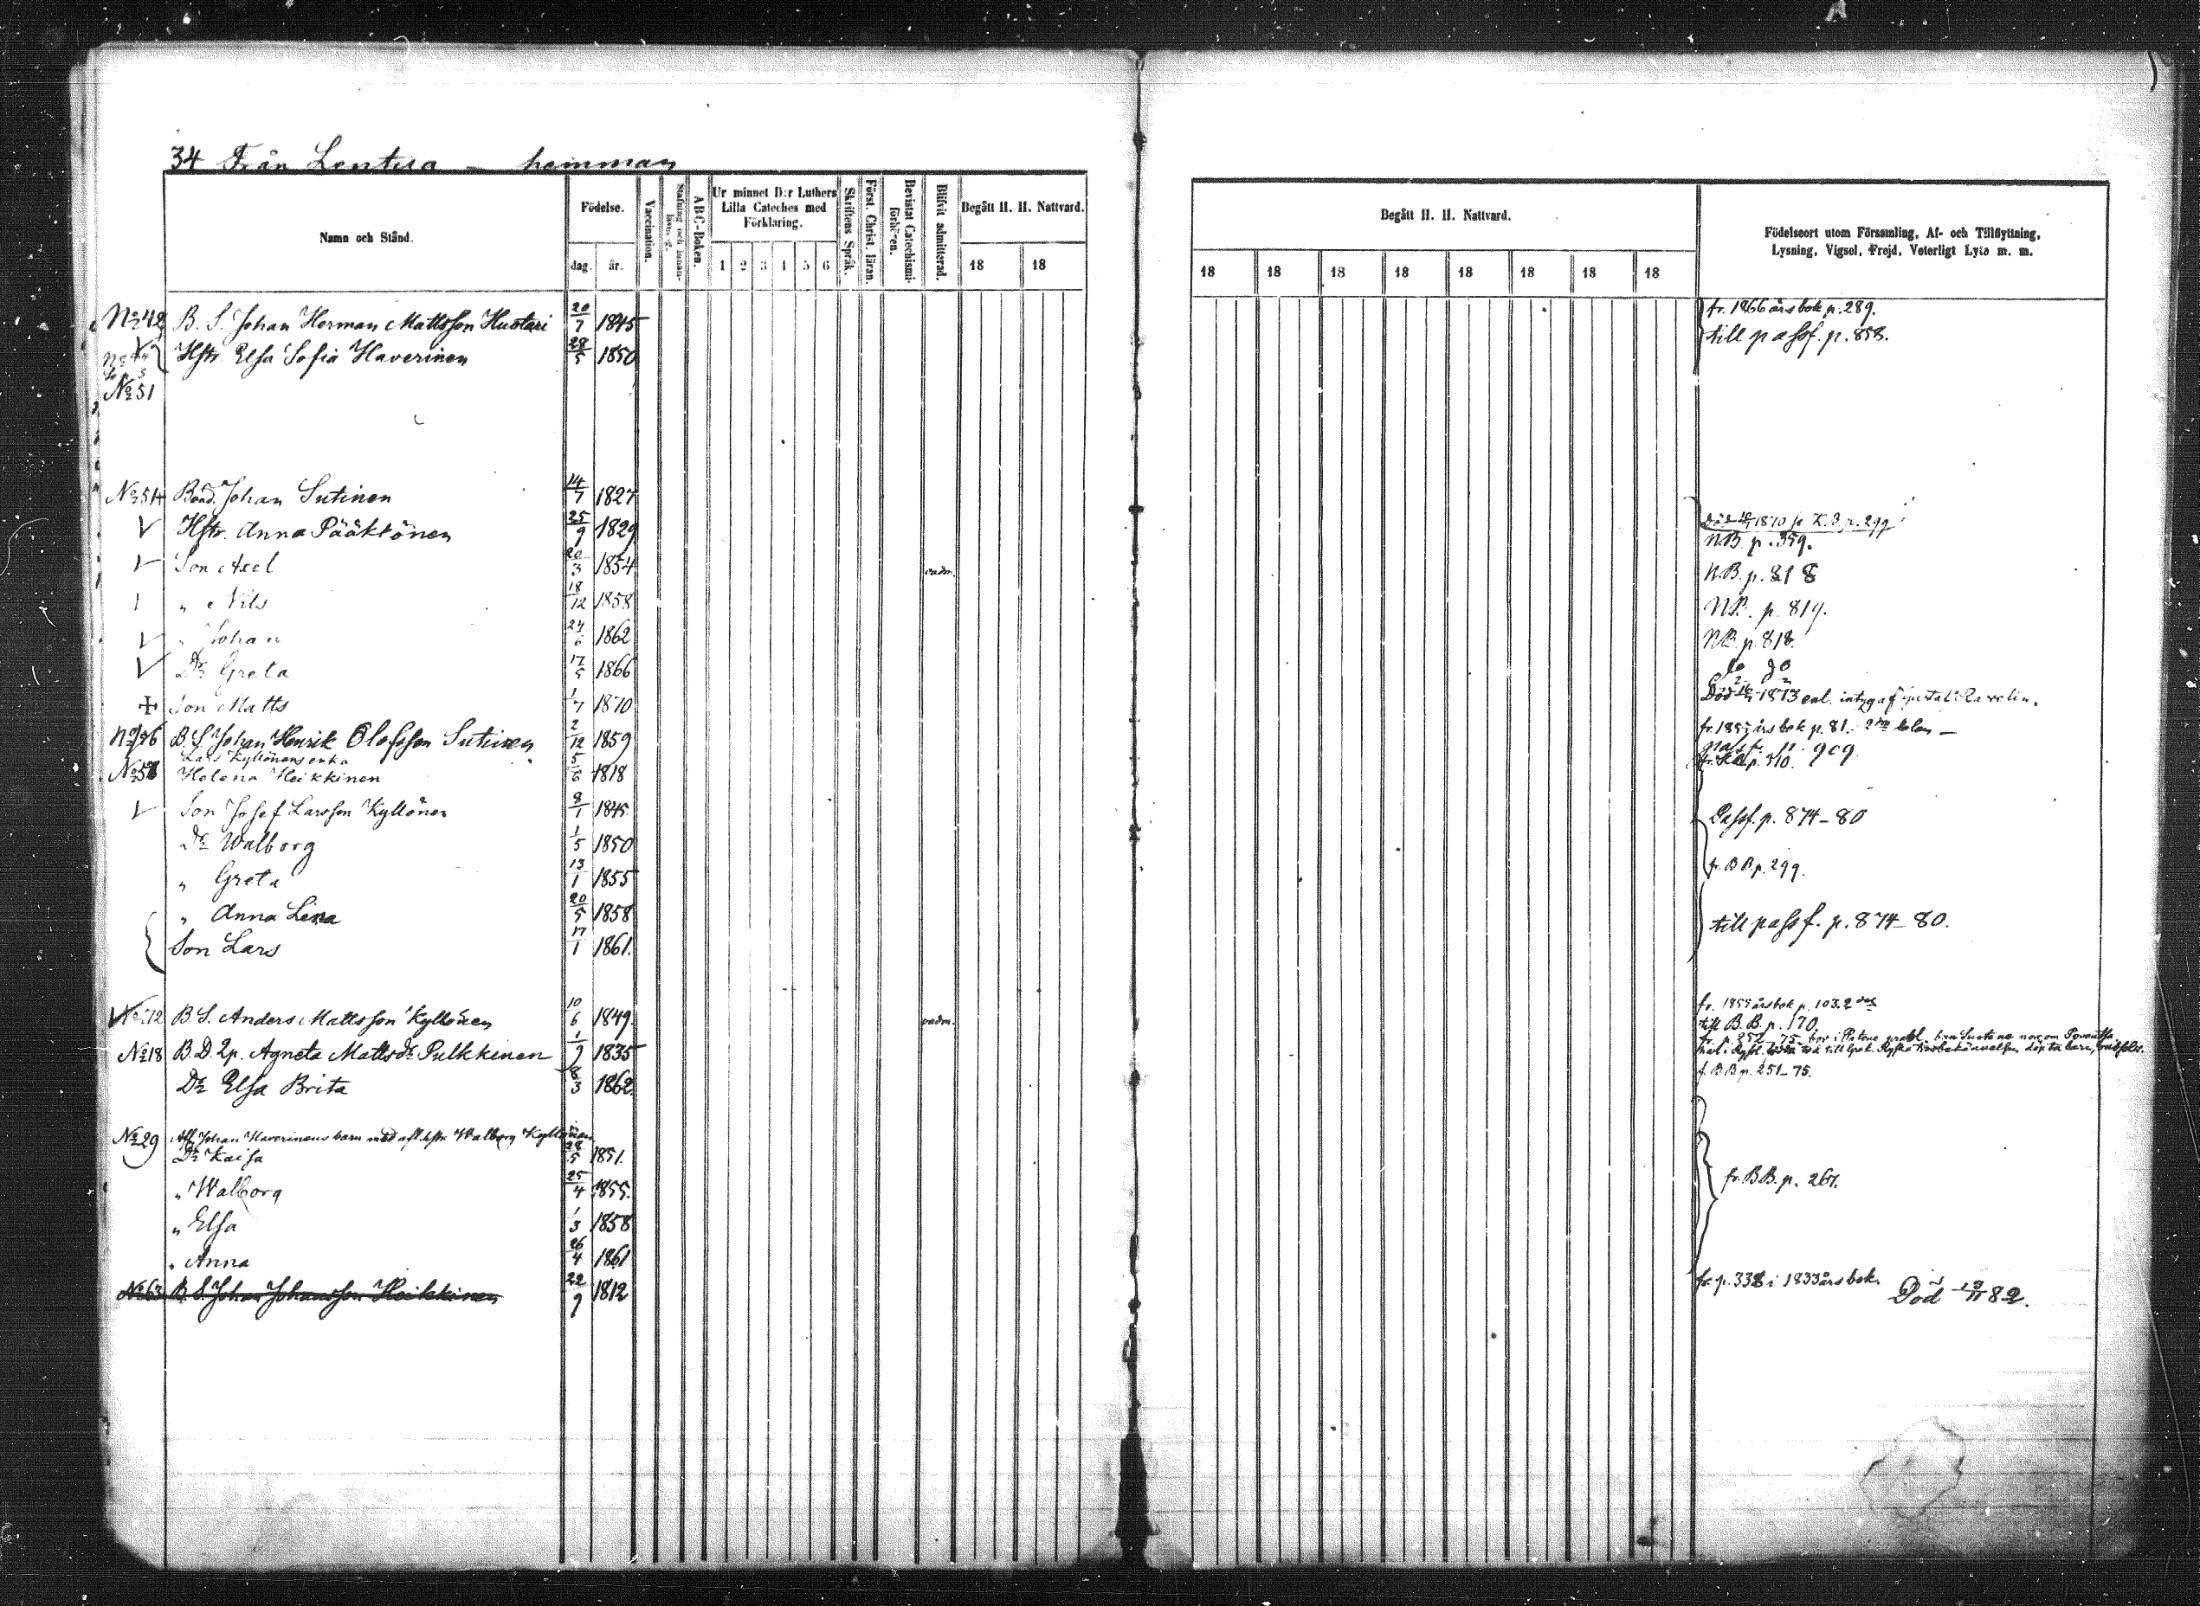 34 Från Lentira — hemman
Namn och Stånd.
Födelse.
dag. år.
Vaccination.
Stafning och Innanläsning.
ABC-Boken.
Ur minnet D:r Luthers Lilla Cateches med Förklaring.
1 2 3 4 5 6
Skriftens Språk.
Först. Christ. läran.
Bevistat Catechismiförhören.
Blifvit admitterad.
Begått H. H. Nattvard.
18 18
Begått H. H. Nattvard.
18 18 18 18 18 18 18 18
Födelseort utom Församling, Af- och Tillflyttning,
Lysning, Vigsel, Frejd, Veterligt Lyte m. m.
No 42 B. S. Johan Herman Mattsson Huotari 20/7 1845 fr. 1866 års bok p. 289.
Hstr. Elsa Sofia Haverinen 28/5 1850 till passf. p. 858.
No 51
No 54 Bond. Johan Sutinen 14/7 1827
Hstr. Anna Pääktönen 25/9 1829 Död 1870 se K.B. p. 299
N.B. p. 359.
Son Axel 20/3 1854 oadm. N.B. p. 818
" Nils 18/12 1858 N.B. p. 819.
" Johan 24/6 1862 N.B. p. 818.
Dr Greta 17/5 1866 do do
Son Matts 1/7 1870 Död 1873 enl. intyg af
No 56 B. S. Johan Henrik Olofsson Sutinen 2/12 1859 fr. 1855 års bok p. 81. 2dra kolon —
passf. p. 909.
Lars Kyllönens enka
No 57 Helena Heikkinen 5/6 1818 p. 310.
Son Josef Larsson Kyllönen 9/1 1845 Passf. p. 874–80
Dr Walborg 1/5 1850
" Greta 13/1 1855 fr. B.B. p. 299.
" Anna Lena 20/5 1858 till passf. p. 874–80.
Son Lars 17/1 1861.
No 72 B. S. Anders Mattsson Kyllönen 10/6 1849. oadm. fr. 1855 års bok p. 103. 2
till B. B. p. 170.
No 18 B. D. 2p. Agneta Mattsdr Pulkkinen 1/9 1835 fr. p. 252–75.
Dr Elsa Brita 8/3 1862. f. B B p. 251–75.
No 29 Afl. Johan Haverinens barn med afl. hstr Walborg Kyllönen
Dr Kaisa 28/5 1851.
" Walborg 25/4 1855. fr. B B. p. 267.
" Elsa 1/3 1858
" Anna 26/4 1861
No 63 B. S. Johan Johansson Heikkinen 22/9 1812 fr. p. 338 i 1833 års bok. Död 82.